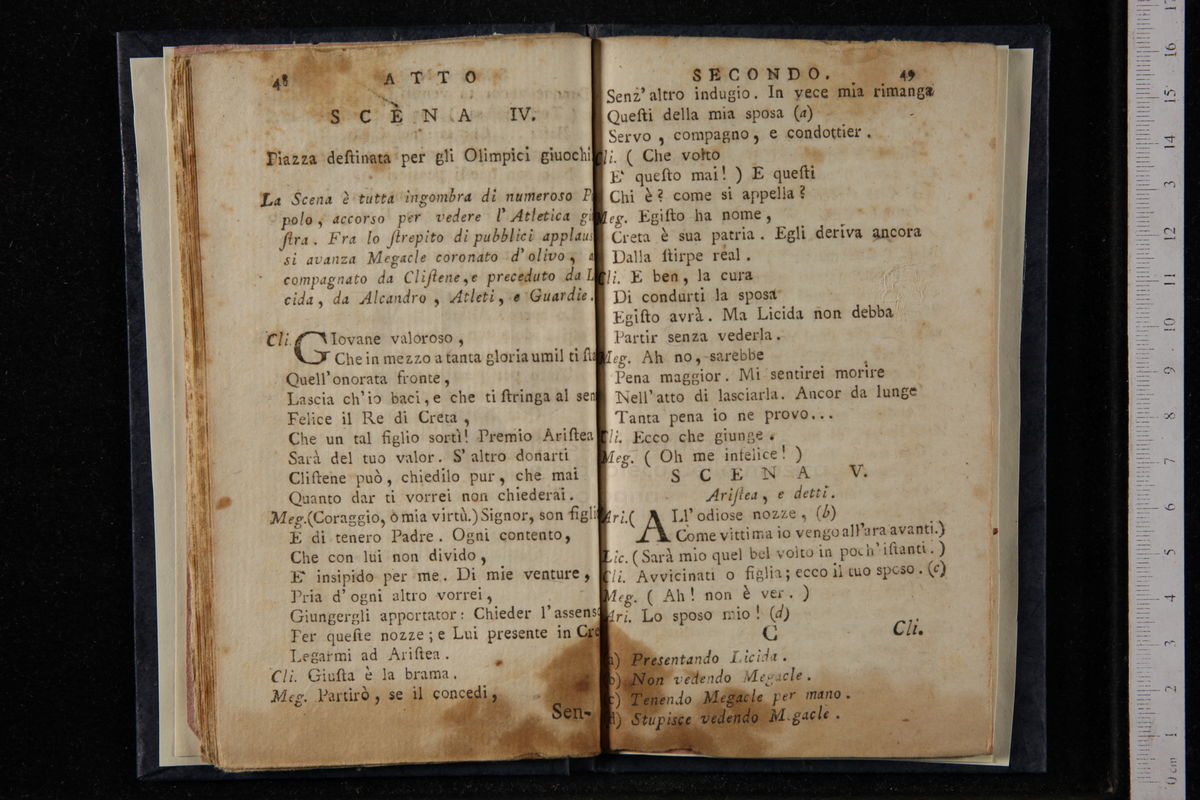 48 ATTO
SCENA IV.
Piazza deſtinata per gli Olimpici giuochi
La Scena è tutta ingombra di numeroso P
polo, accorso per vedere l'Atletica gi
ſtra. Fra lo ſtrepito di pubblici applaus
si avanza Megacle coronato d'olivo, a
compagnato da Cliſtene, e preceduto da L
cida, da Alcandro, Atleti, e Guardie.
Cli. GIovane valoroso,
Che in mezzo a tanta gloria umil ti ſta
Quell'onorata fronte,
Lascia ch'io baci, e che ti ſtringa al sen
Felice il Re di Creta,
Che un tal figlio sortì! Premio Ariſtea
Sarà del tuo valor. S'altro donarti
Cliſtene può, chiedilo pur, che mai
Quanto dar ti vorrei non chiederai.
Meg. (Coraggio, ò mia virtù.) Signor, son figli
E di tenero Padre. Ogni contento,
Che con lui non divido,
E' insipido per me. Di mie venture,
Pria d'ogni altro vorrei,
Giungergli apportator: Chieder l'assenso
Per queſte nozze; e Lui presente in Cre
Legarmi ad Ariſtea.
Cli. Giuſta è la brama.
Meg. Partirò, se il concedi,
Sen-
SECONDO. 49
Senz'altro indugio. In vece mia rimanga
Queſti della mia sposa (a)
Servo, compagno, e condottier.
Cli. (Che volto
E' queſto mai!) E queſti
Chi è? come si appella?
Meg. Egiſto ha nome,
Creta è sua patria. Egli deriva ancora
Dalla ſtirpe real.
Cli. E ben, la cura
Di condurti la sposa
Egiſto avrà. Ma Licida non debba
Partir senza vederla.
Meg. Ah no, sarebbe
Pena maggior. Mi sentirei morire
Nell'atto di lasciarla. Ancor da lunge
Tanta pena io ne provo...
Cli. Ecco che giunge.
Meg. (Oh me infelice!)
SCENA V.
Ariſtea, e detti.
Ari. (ALl'odiose nozze, (b)
Come vittima io vengo all'ara avanti.)
Lic. (Sarà mio quel bel volto in poch'iſtanti.)
Cli. Avvicinati o figlia; ecco il tuo sposo. (c)
Meg. (Ah! non è ver.)
Ari. Lo sposo mio! (d)
C Cli.
(a) Presentando Licida.
(b) Non vedendo Megacle.
(c) Tenendo Megacle per mano.
(d) Stupisce vedendo M.gacle.